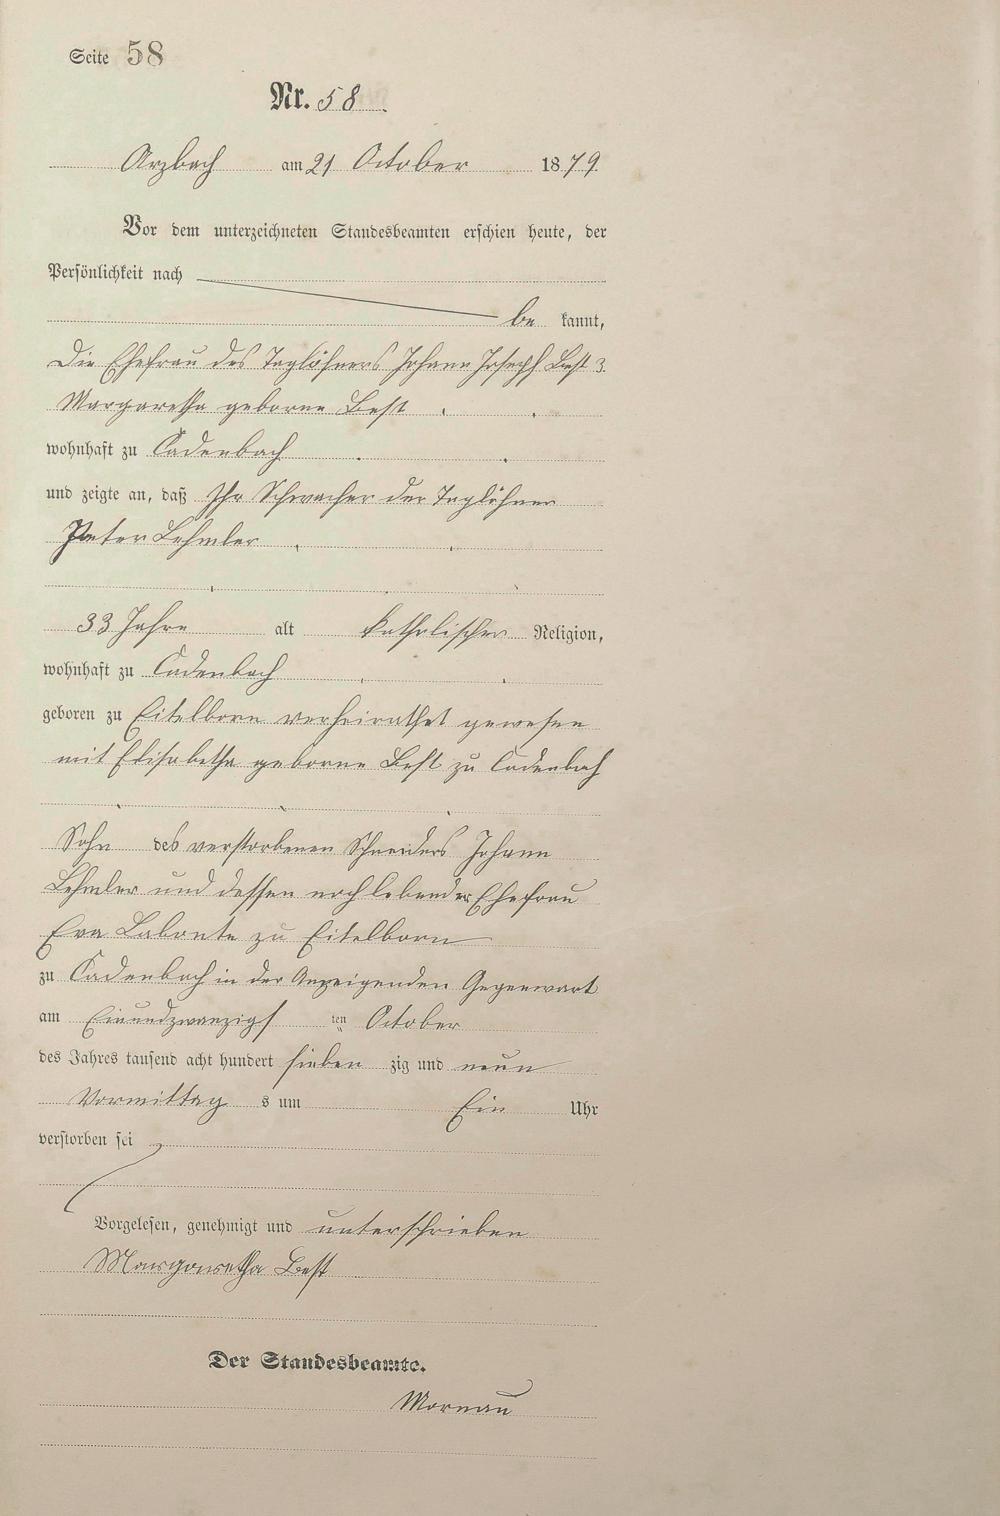 Seite 58
Nr. 58
Arzbach am 21 October 1879.
Vor dem unterzeichneten Standesbeamten erschien heute, der
Persönlichkeit nach
be kannt,
Die Ehefrau des Taglöhners Johann Joseph Best 3.
Margaretha geborne Best
wohnhaft zu Cadenbach
und zeigte an, daß Ihr Schwacher der Taglöhner
Peter Lehmler
33 Jahre alt katholischer Religion,
wohnhaft zu Cadenbach
geboren zu Eitelborn verheirathet gewesen
mit Elisabetha geborne Best zu Cadenbach
Sohn des verstorbenen Schneiders Johann
Lehmler und dessen noch lebender Ehefrau
Eva Labonte zu Eitelborn
zu Cadenbach in der Anzeigenden Gegenwart
am Einundzwanzigs ten October
des Jahres tausend acht hundert sieben zig und neun
Vormittag s um Ein Uhr
verstorben sei
Vorgelesen, genehmigt und unterschrieben
Margaretha Best
Der Standesbeamte.